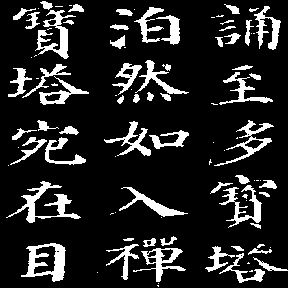 誦至多寶塔
泊然如入禪
寶塔宛在目